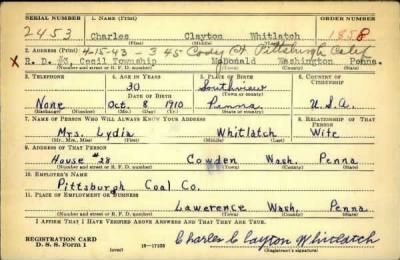 SERIAL NUMBER 1. NAME (Print) ORDER NUMBER
2453 Charles Clayton Whitlatch 1858
(First) (Middle) (Last)
2. ADDRESS (Print) 4-15-43 - 345 Cody Ct Pittsburgh Calif
X R. D. #3, Cecil Township McDonald Washington Penna.
(Number and street or R. F. D. number) (Town) (County) (State)
3. TELEPHONE 4. AGE IN YEARS 5. PLACE OF BIRTH 6. COUNTRY OF CITIZENSHIP
30 Southview
DATE OF BIRTH (Town or county)
None Oct. 8, 1910 Penna. U.S.A.
(Exchange) (No.) (Mo.) (Day) (Yr.) (State or country)
7. NAME OF PERSON WHO WILL ALWAYS KNOW YOUR ADDRESS 8. RELATIONSHIP OF THAT PERSON
Mrs. Lydia Whitlatch Wife
(Mr., Mrs., Miss) (First) (Middle) (Last)
9. ADDRESS OF THAT PERSON
House #28 Cowden Wash. Penna
(Number and street or R. F. D. number) (Town) (County) (State)
10. EMPLOYER'S NAME
Pittsburgh Coal Co.
11. PLACE OF EMPLOYMENT OR BUSINESS
Lawerence Wash. Penna.
(Number and street or R. F. D. number) (Town) (County) (State)
I AFFIRM THAT I HAVE VERIFIED ABOVE ANSWERS AND THAT THEY ARE TRUE.
REGISTRATION CARD
D. S. S. Form 1 (over) 16-17105
Charles Clayton Whitlatch
(Registrant's signature)